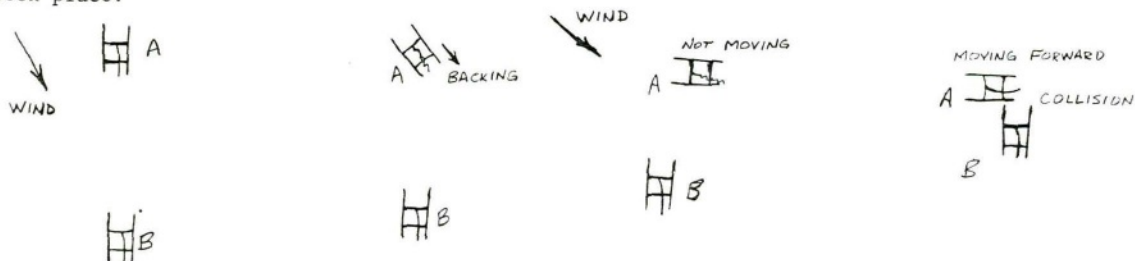 place.
WIND
A
B
A
BACKING
B
WIND
NOT MOVING
A
B
MOVING FORWARD
A
COLLISION
B